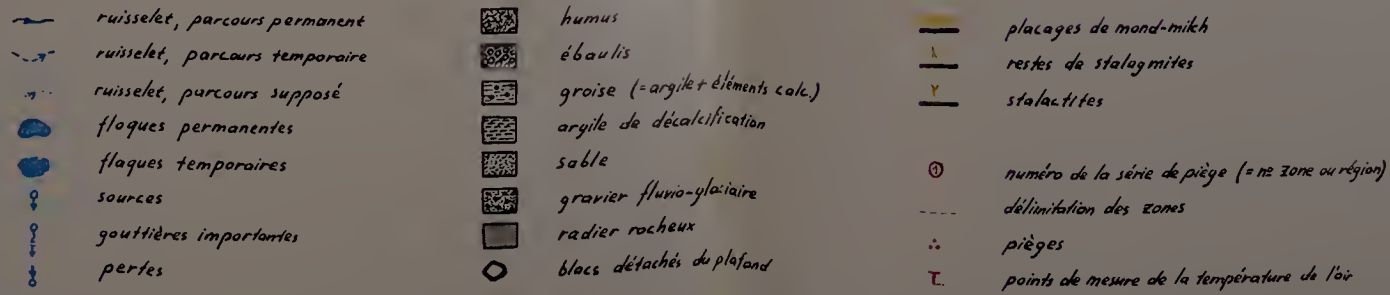 ruisselet, parcours permanent
ruisselet, parcours temporaire
ruisselet, parcours supposé
floques permanentes
flaques temporaires
sources
gouttières importantes
pertes
humus
ébaulis
groise (=argile+éléments calc.)
argile de décalcification
sable
gravier fluvio-glaciaire
radier rocheux
blocs détachés du plafond
placages de mond-milch
restes de stalagmites
stalactites
1 numéro de la série de piège (=no zone ou région)
délimitation des zones
pièges
T. points de mesure de la température de l'air